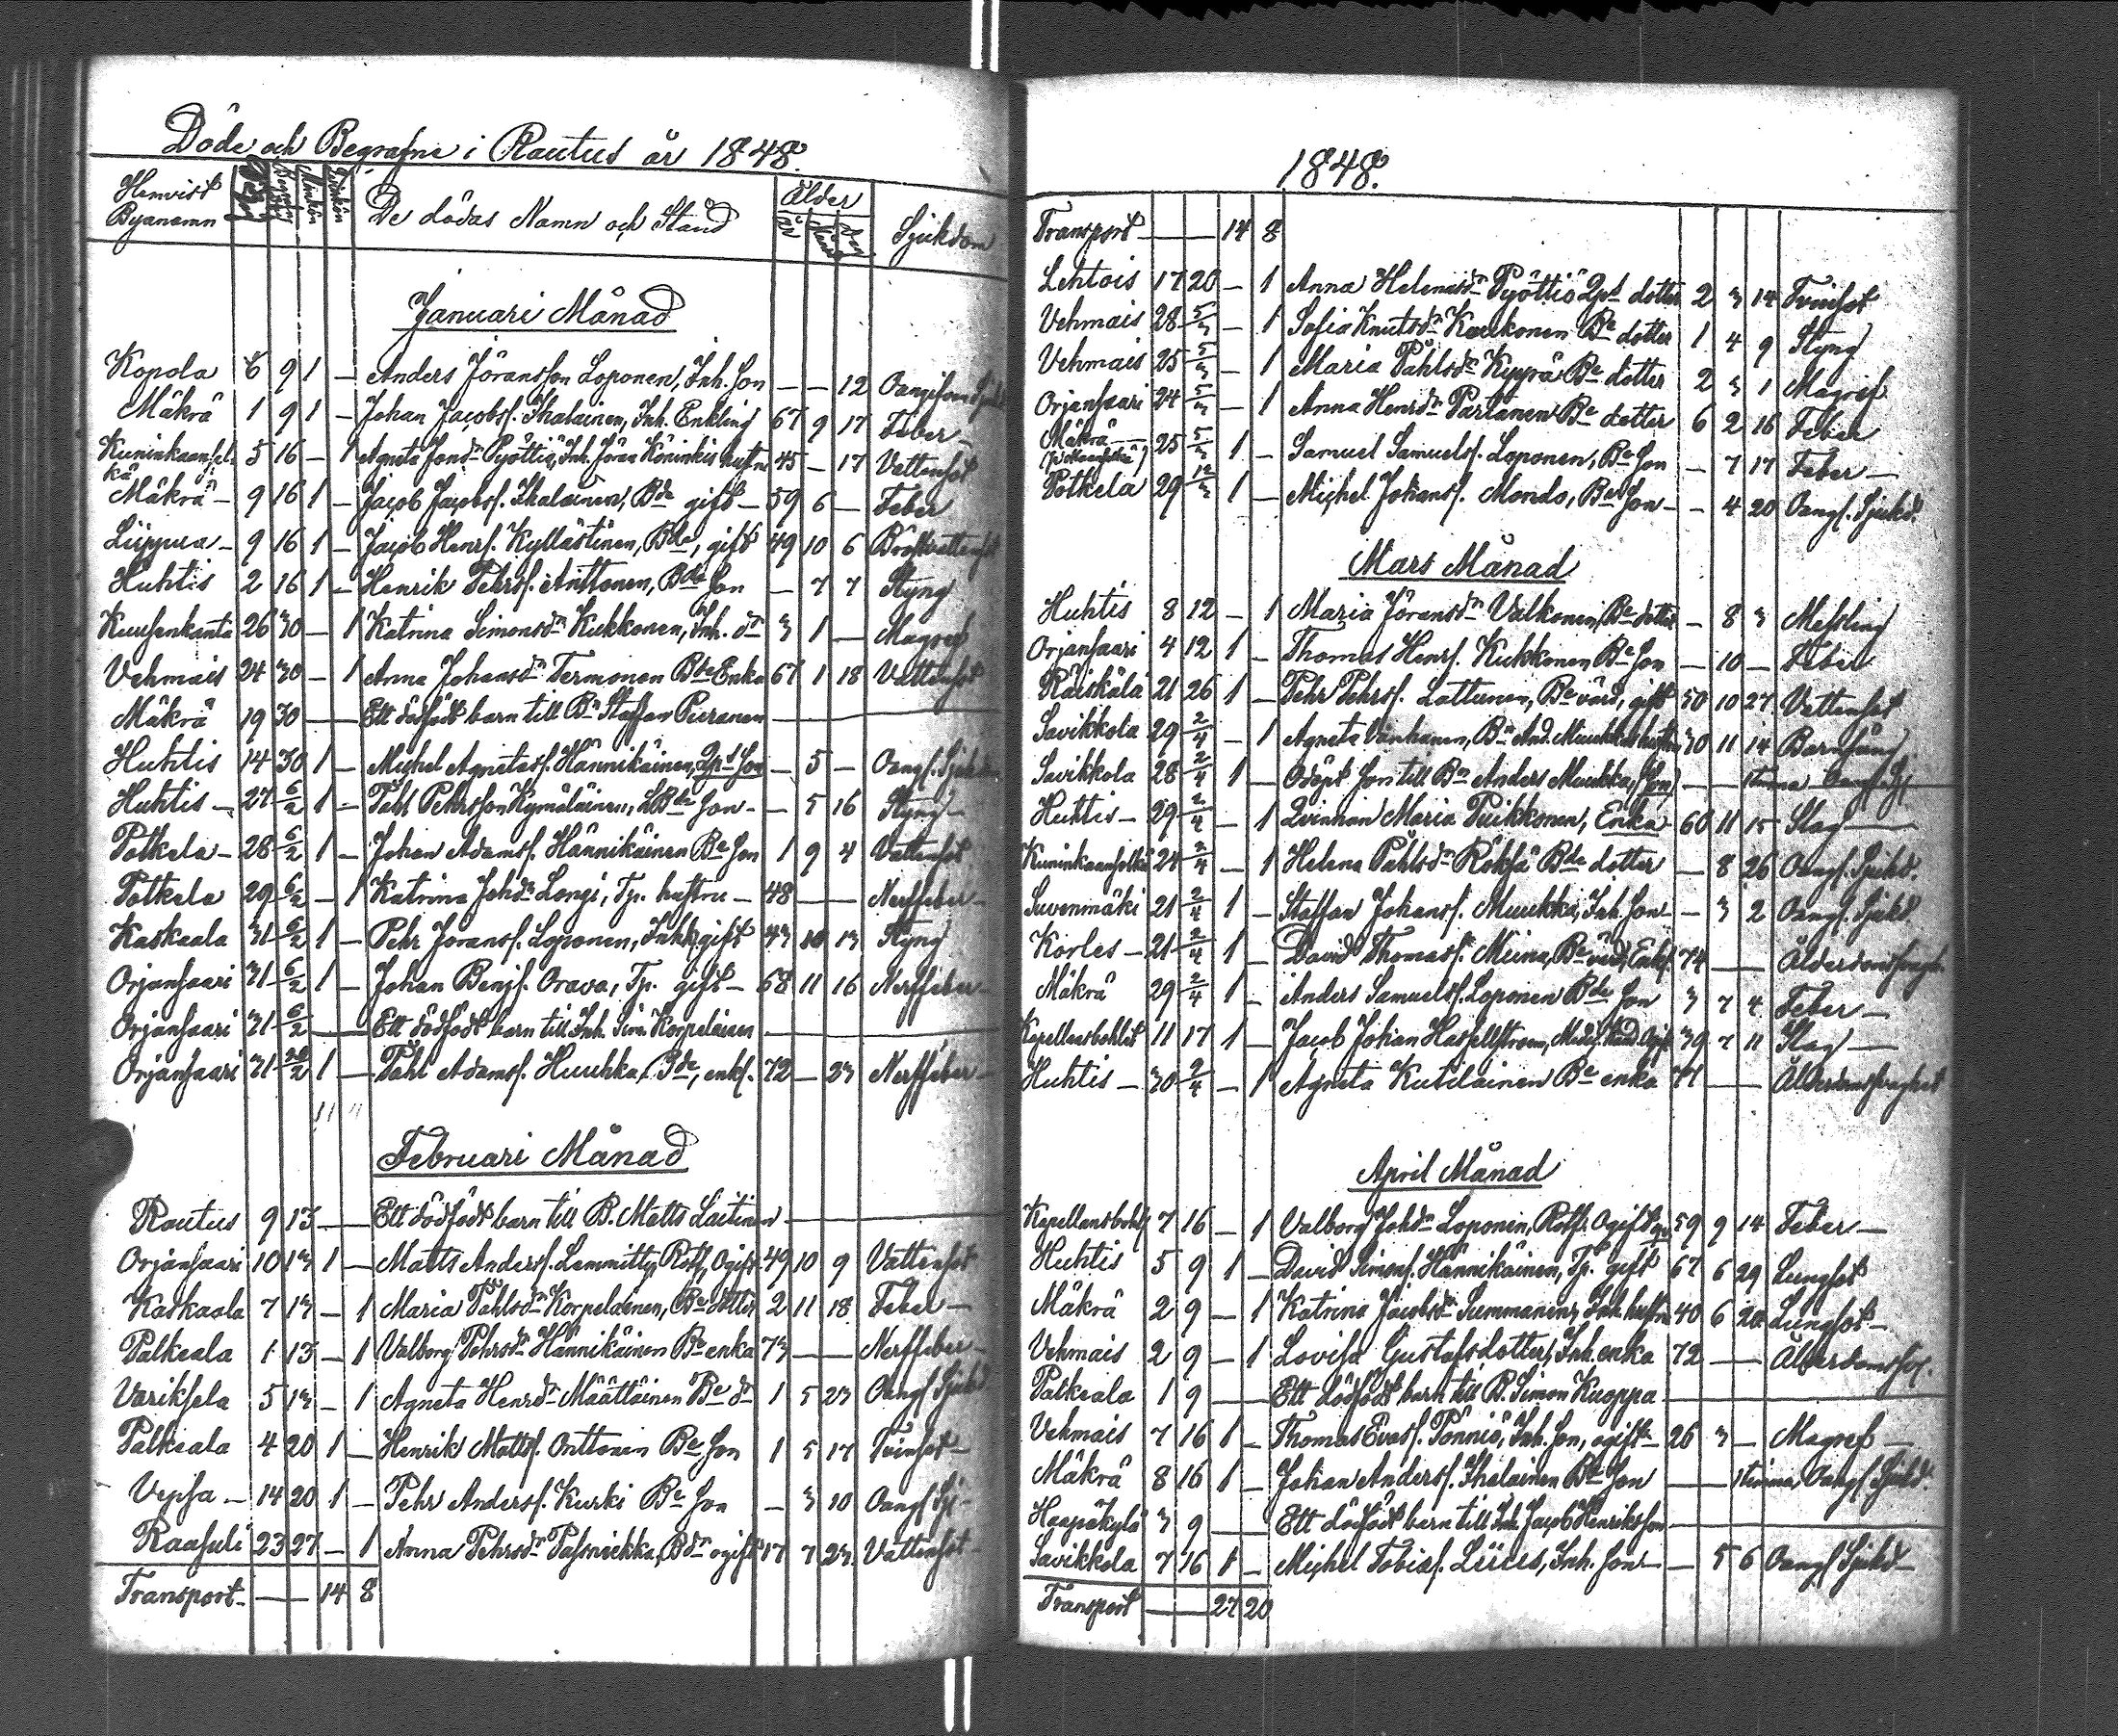 Döde och Begrafne i Rautus år 1848.
Hemvist Byanamn Död Begrafne Mankön Qvinkön De dödas Namn och Stånd Ålder År Månad Dag Sjukdom
Januari Månad
Kopola 6 9 1 — Anders Jöransson Loponen, Inh. son — — 12 Oangifven Sjukd.
Mäkrä 1 9 1 — Johan Jacobsf. Ihalainen, Inh. Enkling 67 9 17 Feber —
Kuninkaanselkä 5 16 — 1 Agneta Jonsdr Pyöttiä, Inh. Jöran Köninkis hustru 45 — 17 Vattensot
Mäkrä — 9 16 1 — Jacob Jacobsf. Ihalainen, Bde gift — 59 6 — Feber
Liippua — 9 16 1 — Jacob Henrs. Kyllästinen, Bde, gift 49 10 6 Bröstvattensot
Huhtis 2 16 1 — Henrik Pehrsf. Anttonen, Bde Son — 7 7 Styng
Kuusenkanta 26 30 — 1 Katrina Simonsdr Kukkonen, Inh. dr 3 1 — Magref
Vehmais 24 30 — 1 Anna Johansdr Termonen Bde Enka 67 1 18 Vattensot
Mäkrä 19 30 — — Ett dödfödt barn till Bn Staffan Pieranen
Huhtis 14 30 1 — Michel Agnetasf. Hännikäinen, Qps Son — 5 — Oangf. Sjukdom
Huhtis — 27 6/2 1 — Påhl Pehrsson Kymäläinen, Bde Son — — 5 16 Styng —
Potkela — 28 6/2 1 — Johan Adamsf. Hännikäinen Be Son 1 9 4 Vattensot
Potkela 29 6/2 — 1 Katrina Johdr Longi, Tp. hustru — 48 — — Nerffeber —
Kaskaala 31 6/2 1 — Pehr Joransf. Loponen, Inh. gift 43 10 13 Styng
Orjansaari 31 6/2 1 — Johan Benjf. Orava, Tp. gift — 68 11 16 Nerffeber —
Orjansaari 31 6/2 — — Ett dödfödt barn till Inh. Sim. Korpelainen
Orjansaari 31 20/2 1 — Påhl Adamsf. Huuhka, Bde, enkl. 72 — 23 Nerffeber —
Februari Månad
Rautus 9 13 — — Ett dödfödt barn till B. Matts Laitinen
Orjansaari 10 13 1 — Matts Andersf. Lemmitty, Roth., Ogift 49 10 9 Vattensot
Kaskaala 7 13 — 1 Maria Påhlsdr Korpelainen, Be dotter 2 11 18 Feber —
Palkeala 1 13 — 1 Valborg Pehrsdr Hännikäinen Be enka 73 — — Nerffeber —
Variksela 5 13 — 1 Agneta Henrdr Määttäinen Be dr 1 5 23 Oangf Sjukd
Palkeala 4 20 1 — Henrik Mattsf. Onttonen Be Son 1 5 17 Tvinsot —
Vepsa — 14 20 1 — Pehr Andersf. Kurki Be Son — 3 10 Oangf Sj. —
Raasuli 23 27 — 1 Anna Pehrsdr Pasonickka, Bdr ogift 17 7 23 Vattensot —
Transport — — 14 8
1848.
Transport — — 14 8
Lehtois 17 20 — 1 Anna Helenasdr Pyöttiö Qps dotter 2 3 14 Tvinsot
Vehmais 28 5/3 — 1 Sofia Knutsdr Karkonen Be dotter 1 4 9 Styng
Vehmais 25 5/3 — 1 Maria Påhlsdr Kyyrä Be dotter 2 3 1 Magref
Orjansaari 24 5/3 — 1 Anna Henrdr Partanen Be dotter 6 2 16 Feber
Mäkrä 25 5/3 1 — Samuel Samuelsf. Loponen, Be Son — 7 17 Feber —
Potkela 29 12/3 1 — Michel Johansf. Mondo, Be Son — — 4 20 Oangf. Sjukd.
Mars Månad
Huhtis 8 12 — 1 Maria Jöransdr Valkonen, Be dotter — 8 3 Messling
Orjansaari 4 12 1 — Thomas Henrf. Kukkonen Be Son — 10 — Feber
Räiskälä 21 26 1 — Pehr Pehrsf. Lattunen, Be värd, gift 50 10 27 Vattensot
Savikkola 29 2/4 — 1 Agneta Vanhanen, Bn And. Muukkas hustru 30 11 14 Barnsäng
Savikkola 28 2/4 1 — Odöpt Son till Bn Anders Muukka, (son) — — 1 timma Oangf. Sj
Huhtis — 29 2/4 — 1 Qvinnan Maria Puikkonen, Enka 60 11 15 Slag —
Kuninkaanselkä 24 2/4 — 1 Helena Påhlsdr Röksä Bde dotter — 8 26 Oangf. Sjukd.
Suvenmäki 21 2/4 1 — Staffan Johansf. Muukka, Inh. Son — — 3 2 Oangf. Sjukd
Korles — 21 2/4 1 — David Thomasf. Miina, Be värd, Enkl. 74 — — Ålderdomssvagh.
Mäkrä 29 2/4 1 — Anders Samuelsf. Loponen Bde Son 3 7 4 Feber —
Kapellansbohlst 11 17 1 — Jacob Johan Hasfellstrom, Medic. Kand. Ogift 39 7 11 Slag —
Huhtis — 30 2/4 — 1 Agneta Kutilainen Be enka 71 — — Ålderdomssvaghet
April Månad
Kapellansbohlst 7 16 — 1 Valborg Johdr Loponen, Roth. Ogift 59 9 14 Feber —
Huhtis 5 9 1 — David Simonf. Hännikäinen, Tp. gift 67 6 29 Lungsot
Mäkrä 2 9 — 1 Katrina Jacobsdr Summanen, Inh. hustru 40 6 20 Lungsot —
Vehmais 2 9 — 1 Lovisa Gustafsdotter, Inh. enka 72 — — Ålderdomssv.
Palkeala 1 9 — — Ett dödfödt barn till B. Simon Kuoppa
Vehmais 7 16 1 — Thomas Evasf. Pönniö, Inh. Son, ogift — 26 3 — Magref —
Mäkrä 8 16 1 — Johan Andersf. Ihalainen Be Son — — 1 timma Oangf Sjukd.
Haapakylä 3 9 — — Ett dödfödt barn till Inh. Jacob Henriksson
Savikkola 7 16 1 — Michel Tobiasf. Liices, Inh. Son — — 5 6 Oangf Sjukd —
Transport — — 27 20